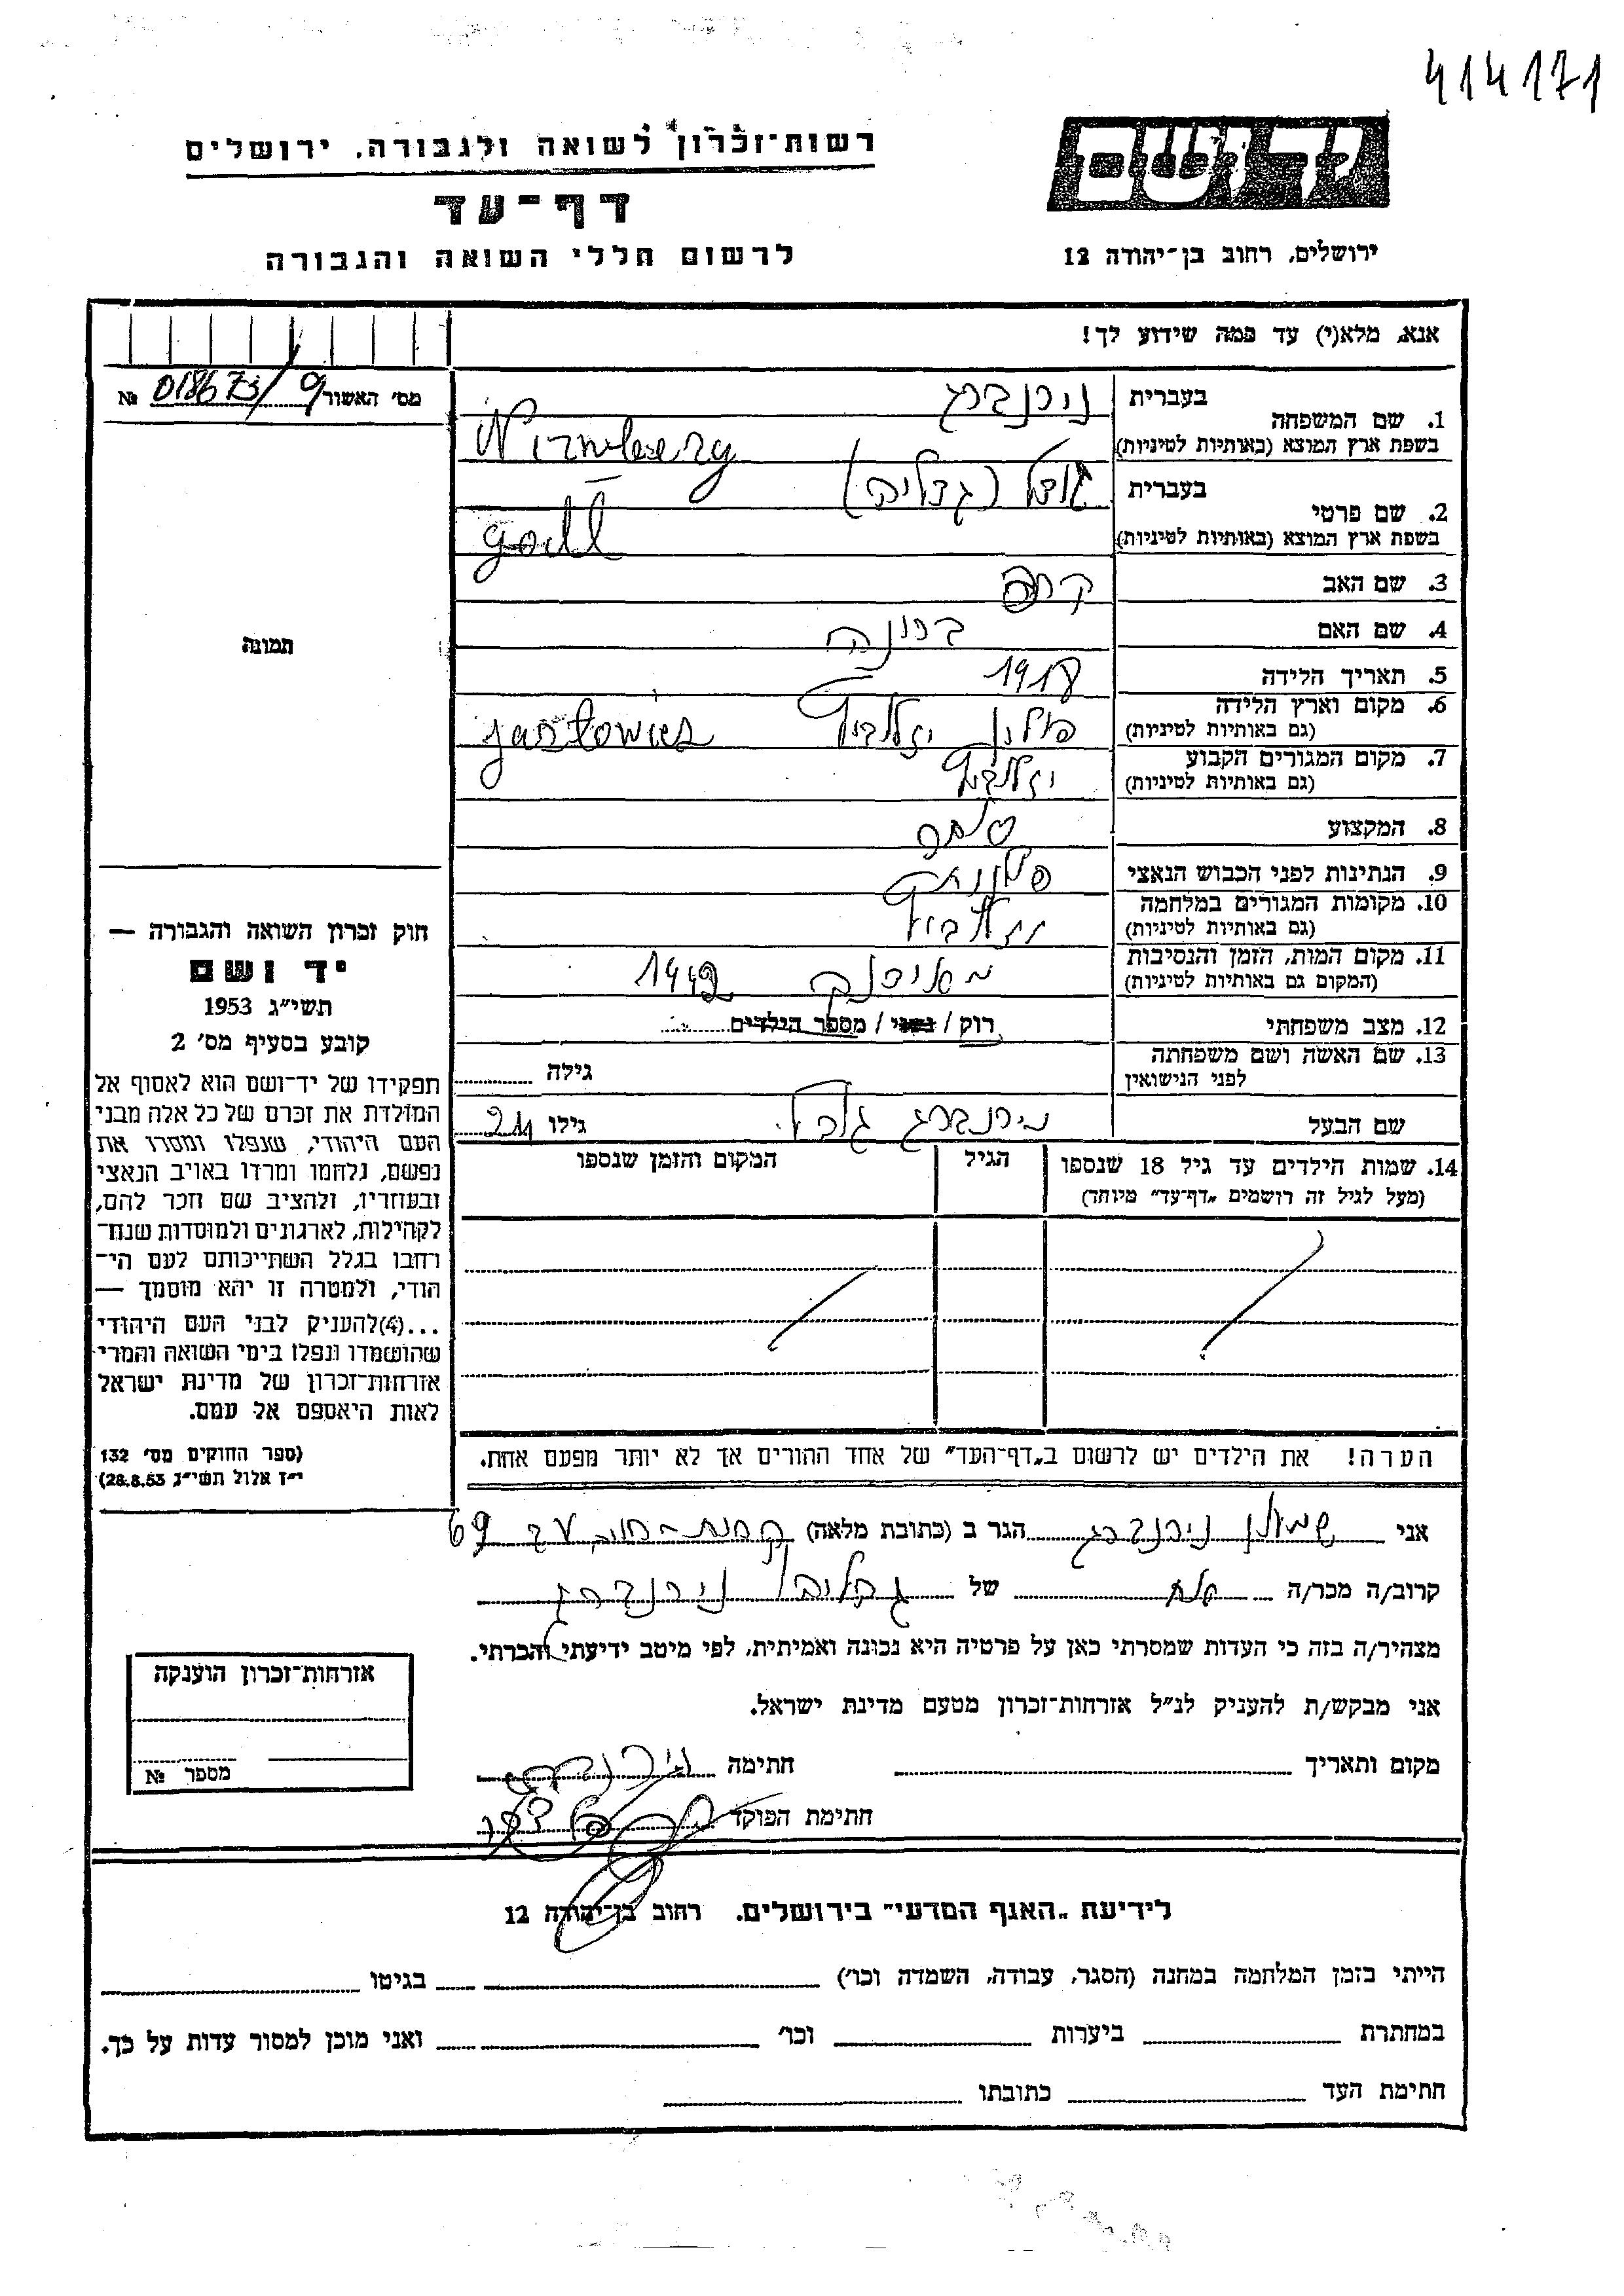 414171
רשות־זכרון לשואה ולגבורה, ירושלים
דף־עד
לרשום חללי השואה והגבורה
יד ושם
ירושלים, רחוב בן־יהודה 12
אנא, מלא(י) עד כמה שידוע לך!
מס׳ האשור № 018673/9
1. שם המשפחה
בעברית נירנברג
בשפת ארץ המוצא (באותיות לטיניות) Nirnberg
2. שם פרטי
בעברית גודל (גדליה)
בשפת ארץ המוצא (באותיות לטיניות) Godl
3. שם האב
4. שם האם ברונה
5. תאריך הלידה
6. מקום וארץ הלידה פולין
(גם באותיות לטיניות)
7. מקום המגורים הקבוע
(גם באותיות לטיניות)
8. המקצוע
9. הנתינות לפני הכבוש הנאצי
10. מקומות המגורים במלחמה
(גם באותיות לטיניות)
11. מקום המות, הזמן והנסיבות 1942
(המקום גם באותיות לטיניות)
12. מצב משפחתי רוק / נשוי / מספר הילדים
13. שם האשה ושם משפחתה
לפני הנישואין
גילה
שם הבעל נירנברג גילו 24
14. שמות הילדים עד גיל 18 שנספו
(מעל לגיל זה רושמים „דף־עד” מיוחד)
הגיל
המקום והזמן שנספו
הערה! את הילדים יש לרשום ב„דף־העד” של אחד ההורים אך לא יותר מפעם אחת.
תמונה
חוק זכרון השואה והגבורה —
יד ושם
תשי״ג 1953
קובע בסעיף מס׳ 2
תפקידו של יד־ושם הוא לאסוף אל
המולדת את זכרם של כל אלה מבני
העם היהודי, שנפלו ומסרו את
נפשם, נלחמו ומרדו באויב הנאצי
ובעוזריו, ולהציב שם וזכר להם,
לקהילות, לארגונים ולמוסדות שנח־
רחבו בגלל השתייכותם לעם הי־
הודי, ולמטרה זו יהא מוסמך —
...(4)להעניק לבני העם היהודי
שהושמדו ונפלו בימי השואה והמרי
אזרחות־זכרון של מדינת ישראל
לאות היאספם אל עמם.
(ספר החוקים מס׳ 132
י״ז אלול תשי״ג 28.8.53)
אני שמעון נירנברג הגר ב (כתובת מלאה) 69
קרוב/ה מכר/ה אח של נירנברג
מצהיר/ה בזה כי העדות שמסרתי כאן על פרטיה היא נכונה ואמיתית, לפי מיטב ידיעתי והכרתי.
אני מבקש/ת להעניק לנ״ל אזרחות־זכרון מטעם מדינת ישראל.
מקום ותאריך חתימה נירנברג
חתימת הפוקד
אזרחות־זכרון הוענקה
מספר №
לידיעת „האגף המדעי” בירושלים, רחוב בן־יהודה 12
הייתי בזמן המלחמה במחנה (הסגר, עבודה, השמדה וכו׳) בגיטו
במחתרת ביערות וכו׳ ואני מוכן למסור עדות על כך.
חתימת העד כתובתו